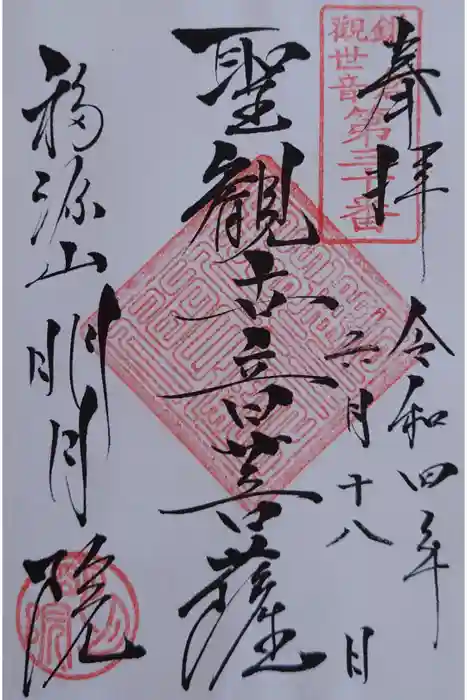 奉拝
令和四年
六月十八日
聖観世音菩薩
福源山明月院
観世音
第三十番